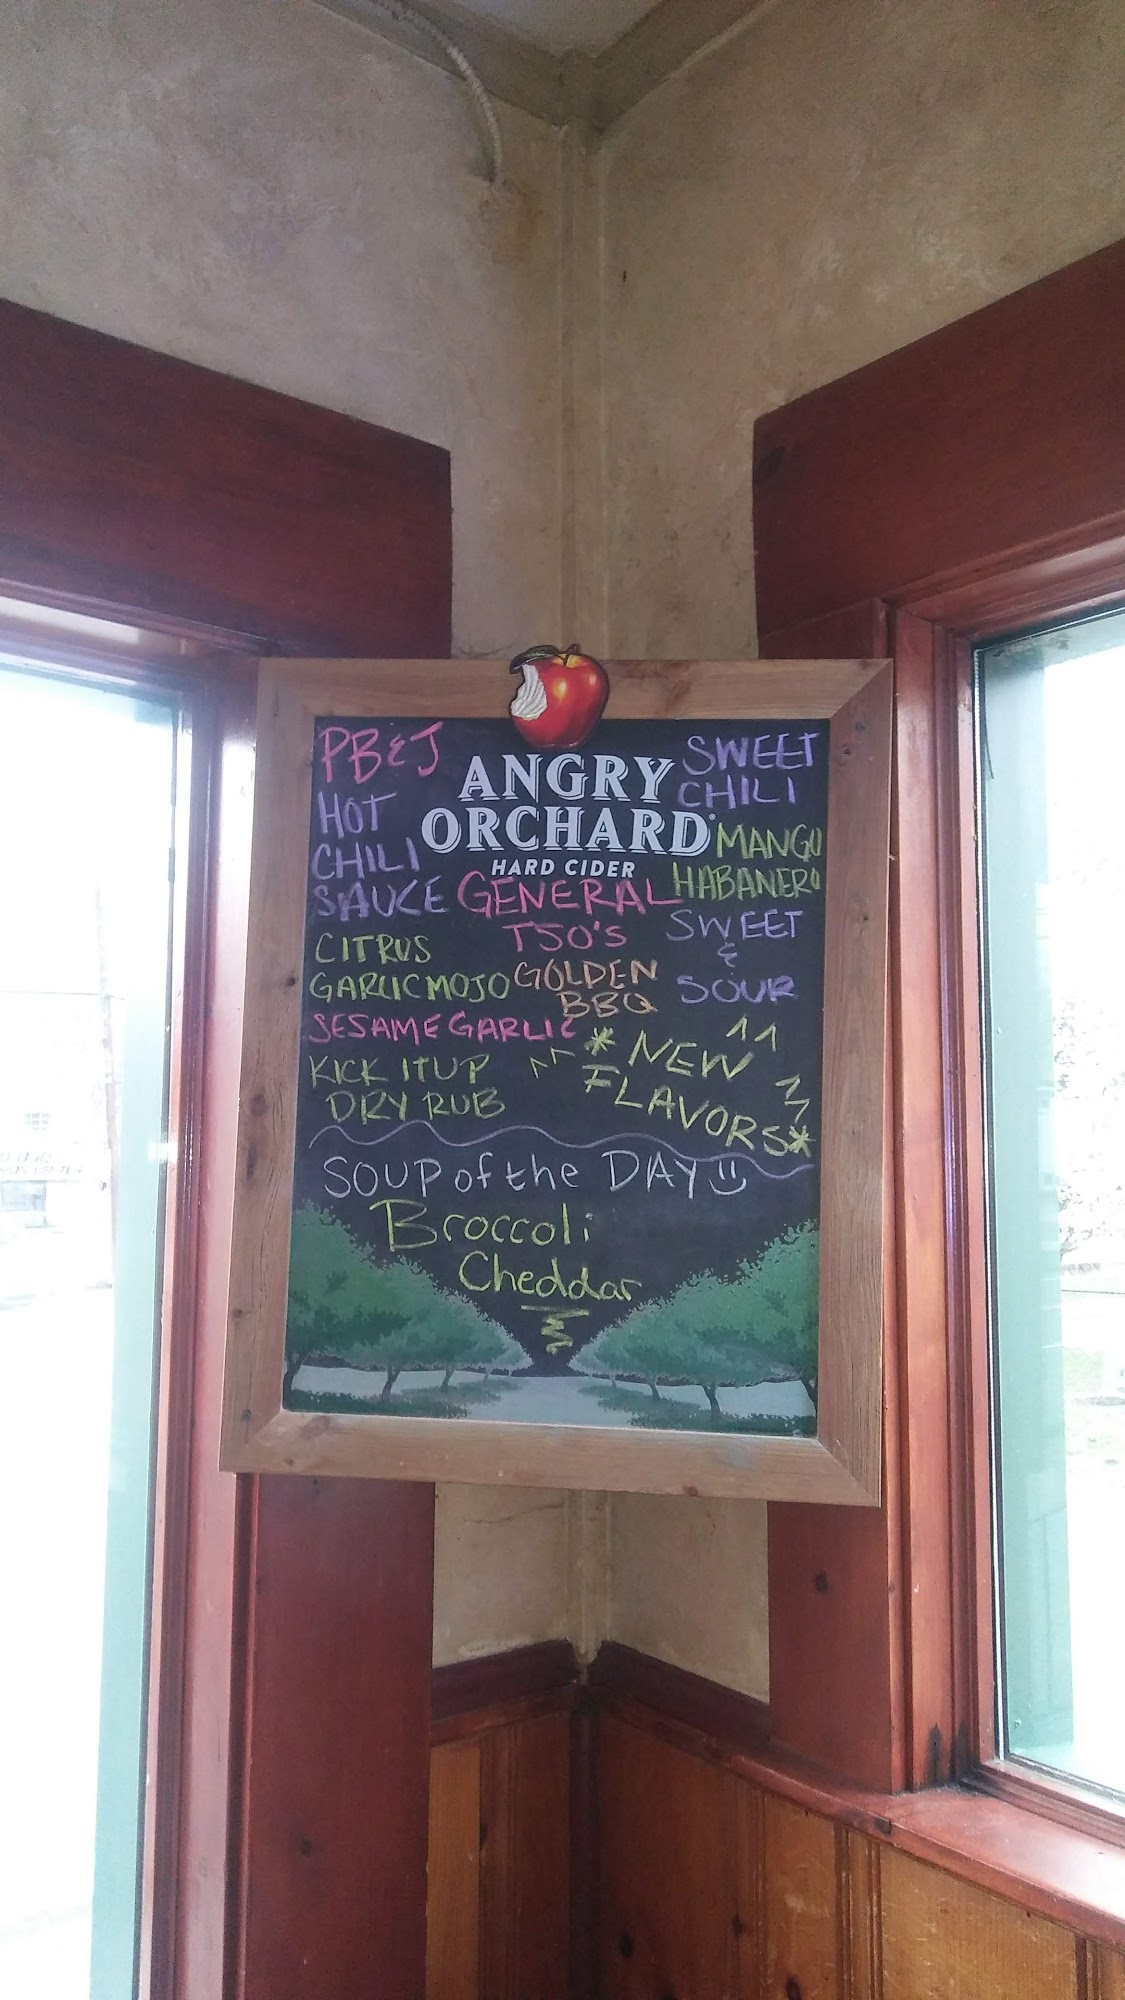 PB&J
HOT
CHILI
SAUCE
CITRUS
GARLIC MOJO
SESAME GARLIC
KICK IT UP
DRY RUB
ANGRY
ORCHARD®
HARD CIDER
GENERAL
TSO'S
GOLDEN
BBQ
SWEET
CHILI
MANGO
HABANERO
SWEET
&
SOUR
* NEW
FLAVORS *
SOUP of the DAY
Broccoli
Cheddar